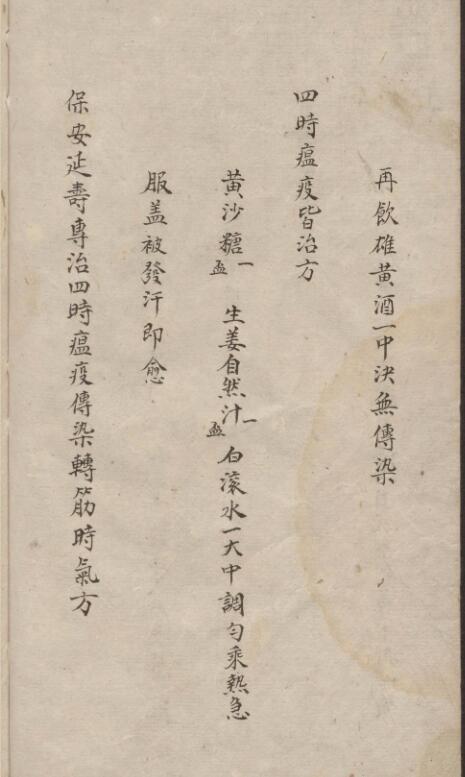 再飲雄黃酒一中決無傳染
四時瘟疫皆治方
黃沙糖一盃 生姜自然汁一盃 白滚水一大中調勻乘熱急
服盖被發汗即愈
保安延壽專治四時瘟疫傳染轉筋時氣方